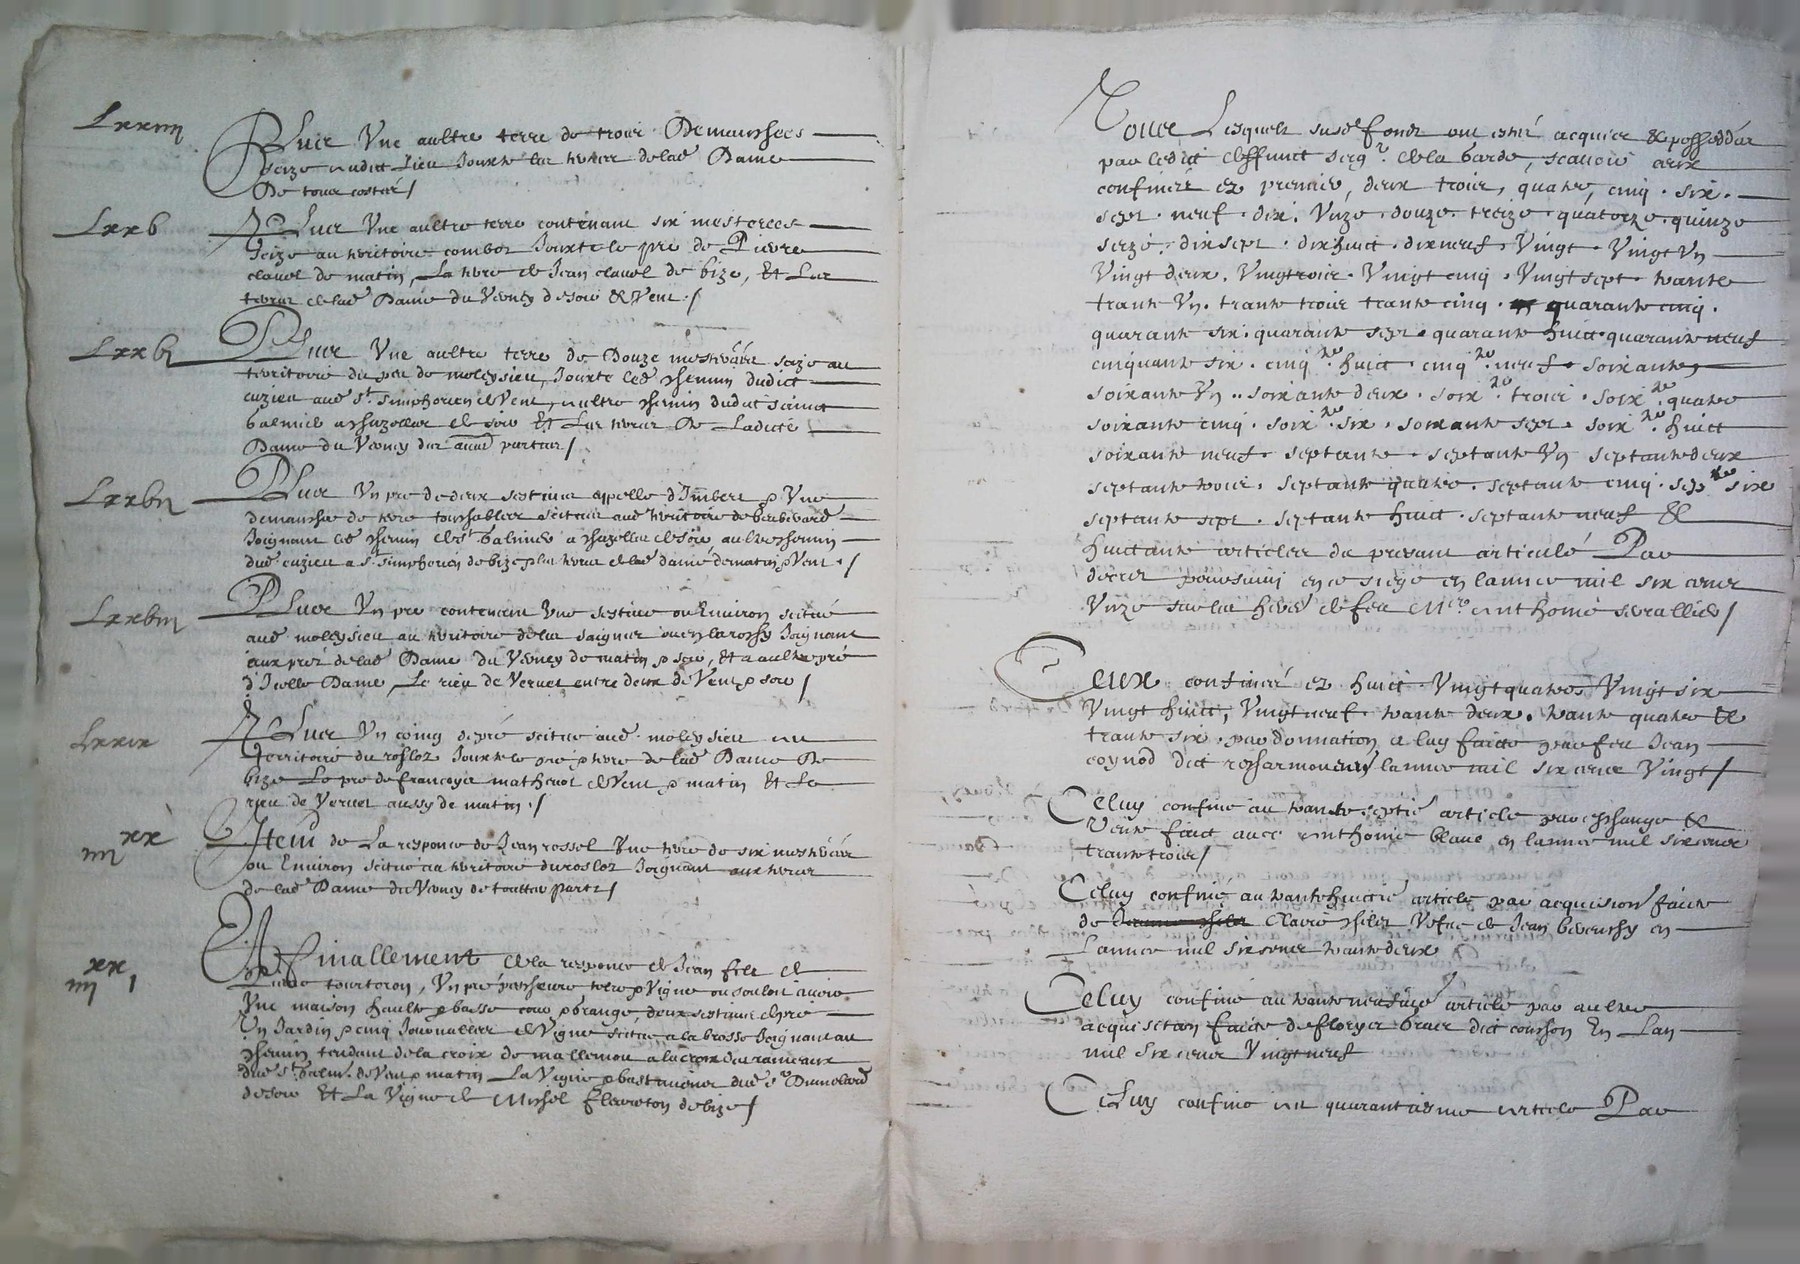 Lxxiiij
Plus Une aultre terre de trois Demanchées
seize audict lieu Jouxte les terres delad Dame
De tous costés /
Lxxb
Plus Une aultre terre contenant six mesterées
seize au teritoire combos Jouxte le pré de Pierre
clavel de matin, La terre de Jean clavel de bize, Et Les
terres de lad Dame du Verney de soir & Vent. /
Lxxbj
Plus Une aultre terre de Douze mesterées seize au
territoire du peu de moleysieu, Jouxte led chemin dudict
cuzieu aud St. Simphorien de Vent, aultre chemin dudict sainct
balmier a chazelles de soir Et Les terres De Ladicte
Dame du Verney des aultres partz /
Lxxbij
Plus Un pré de deux sestives appellé d'Imbert & Une
demanchée de terre
Joignant led chemin de St balmier a chazelles de soir aultre chemin
dud cuzieu a St. Simphorien de bize & les terres de lad dame de matin & Vent. /
Lxxbiij
Plus Un pré contenant Une sestive ou Environ scitué
aud moleysieu au teritoire de la saignes ou en la Joignant
aux prez de lad Dame du Verney de matin & soir, Et a aultre pré
d'Icelle Dame, Le rieu de Vernet entre deux de Vent & soir /
Lxxix
Plus Un coing de pré scitué aud moleysieu au
territoire du rosloz Jouxte le pré & terre de lad Dame De
bize Le pré de françoys mathevot de Vent & matin Et Le
rieu de Vernet aussy de matin. /
iiij xx
Item de La responce de Jean rossel Une terre de six mesterées
ou Environ scitué au teritoire du rosloz Joignant aux terres
de lad Dame du Verney de touttes partz /
iiij xx j
Et finallement de la responce de Jean filz de
tourtoron, Un pré terre & Vigne ou souloit avoir
Une maison haulte & basse cour & grange, deux sestives de pré
Un Jardin & cinq Journallées de Vigne scitué a la brosse Joignant au
chemin tendant de la croix de mallemou a la croix des rameaux
dud St. balm. de Vent & matin La Vigne & bastiments dud Sr Dumolard
de soir Et La Vigne de Michel fleureton de bize /
Tous Lesquelz susd fondz ont estés acquis & possedés
par ledict deffunct seigr. de la garde, scavoir ceux
confinés ez premier, deux trois, quatre, cinq. six.
sept. neuf. dix. Unze. douze. treize. quatorze. quinze
seize. dix sept. dix huict. dix neuf. Vingt. Vingt Un
Vingt deux. Vingt trois. Vingt cinq. Vingt sept. trante
trante Un. trante trois trante cinq. quarante cinq.
quarante six. quarante sept. quarante huict. quarante neuf
cinquante six. cinqte. huict. cinqte. neuf. soixante
soixante Un. soixante deux. soixte. trois. soixte. quatre
soixante cinq. soixte. six. soixante sept. soixte. huict
soixante neuf. septante. septante Un septante deux
septante trois. septante quatre. septante cinq. septe six
septante sept. septante huict. septante neuf &
huictante articles du presant articulé Par
decret poursuivi en ce siege en l'année mil six centz
Unze sur les biens de feu Mre Anthoine
Ceux confinés ez huict. Vingt quatre. Vingt six
Vingt huict, Vingt neuf. trante deux. trante quatre &
trante six. par donnation a luy faicte par feu Jean
coynod dict l'année mil six centz Vingt /
Celuy confiné au trante septie article par eschange &
Vente faict avec Anthoine blanc en l'année mil six centz
trante trois /
Celuy confiné au trante huictie article par acquision faicte
de Vefve de Jean en
L'année mil six centz trante deux
Celuy confiné au trante neufvie article par aultre
acquisition faicte de fleurys dict courson En L'an
mil six centz Vingt neuf
Celuy confiné au quarantiesme article Par